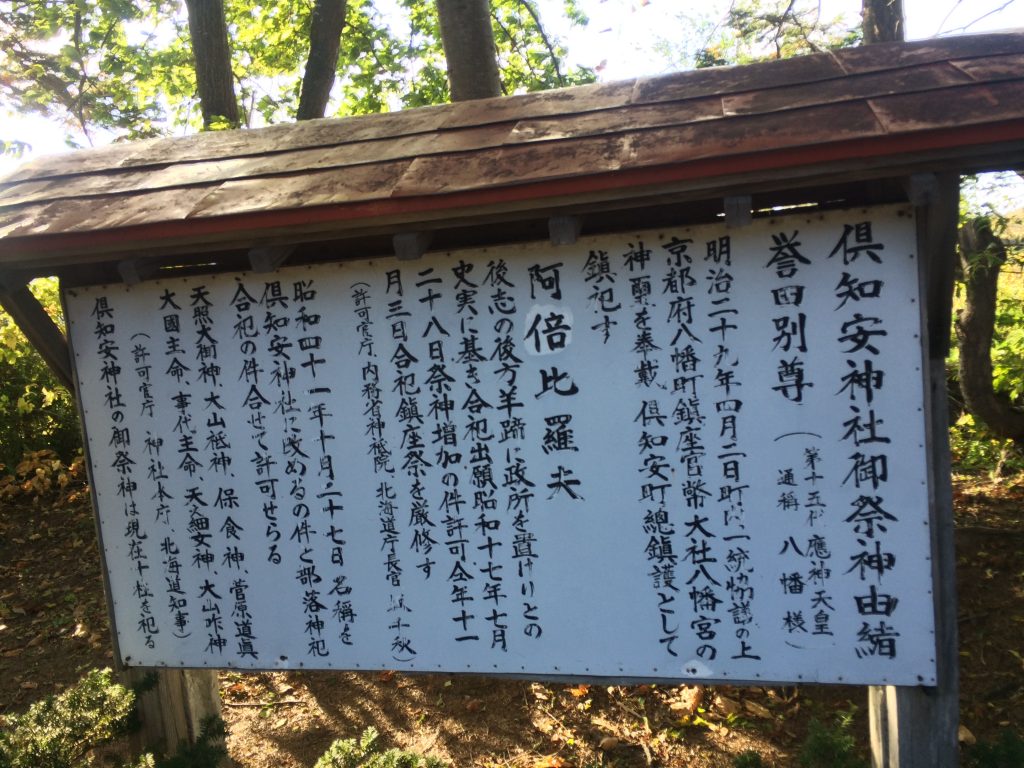 倶知安神社御祭神由緒
誉田別尊（第十五代應神天皇
通稱八幡様）
明治二十九年四月二日町内一統協議の上
京都府八幡町鎮座官幣大社八幡宮の
神璽を奉戴、倶知安町總鎮護として
鎮祀す
阿倍比羅夫
後志の後方羊蹄に政所を置けりとの
史実に基き合祀出願昭和十七年七月
二十八日祭神増加の件許可仝年十一
月三日合祀鎮座祭を厳修す
（許可官庁、内務省神祗院、北海道庁長官 千秋）
昭和四十一年十月二十七日名稱を
倶知安神社に改めるの件と部落神祀
合祀の件合せて許可せらる
天照大御神、大山祗神、保食神、菅原道眞
大國主命、事代主命、天之細女神、大山咋神
（許可官庁 神社本庁、北海道知事）
倶知安神社の御祭神は現在十柱を祀る